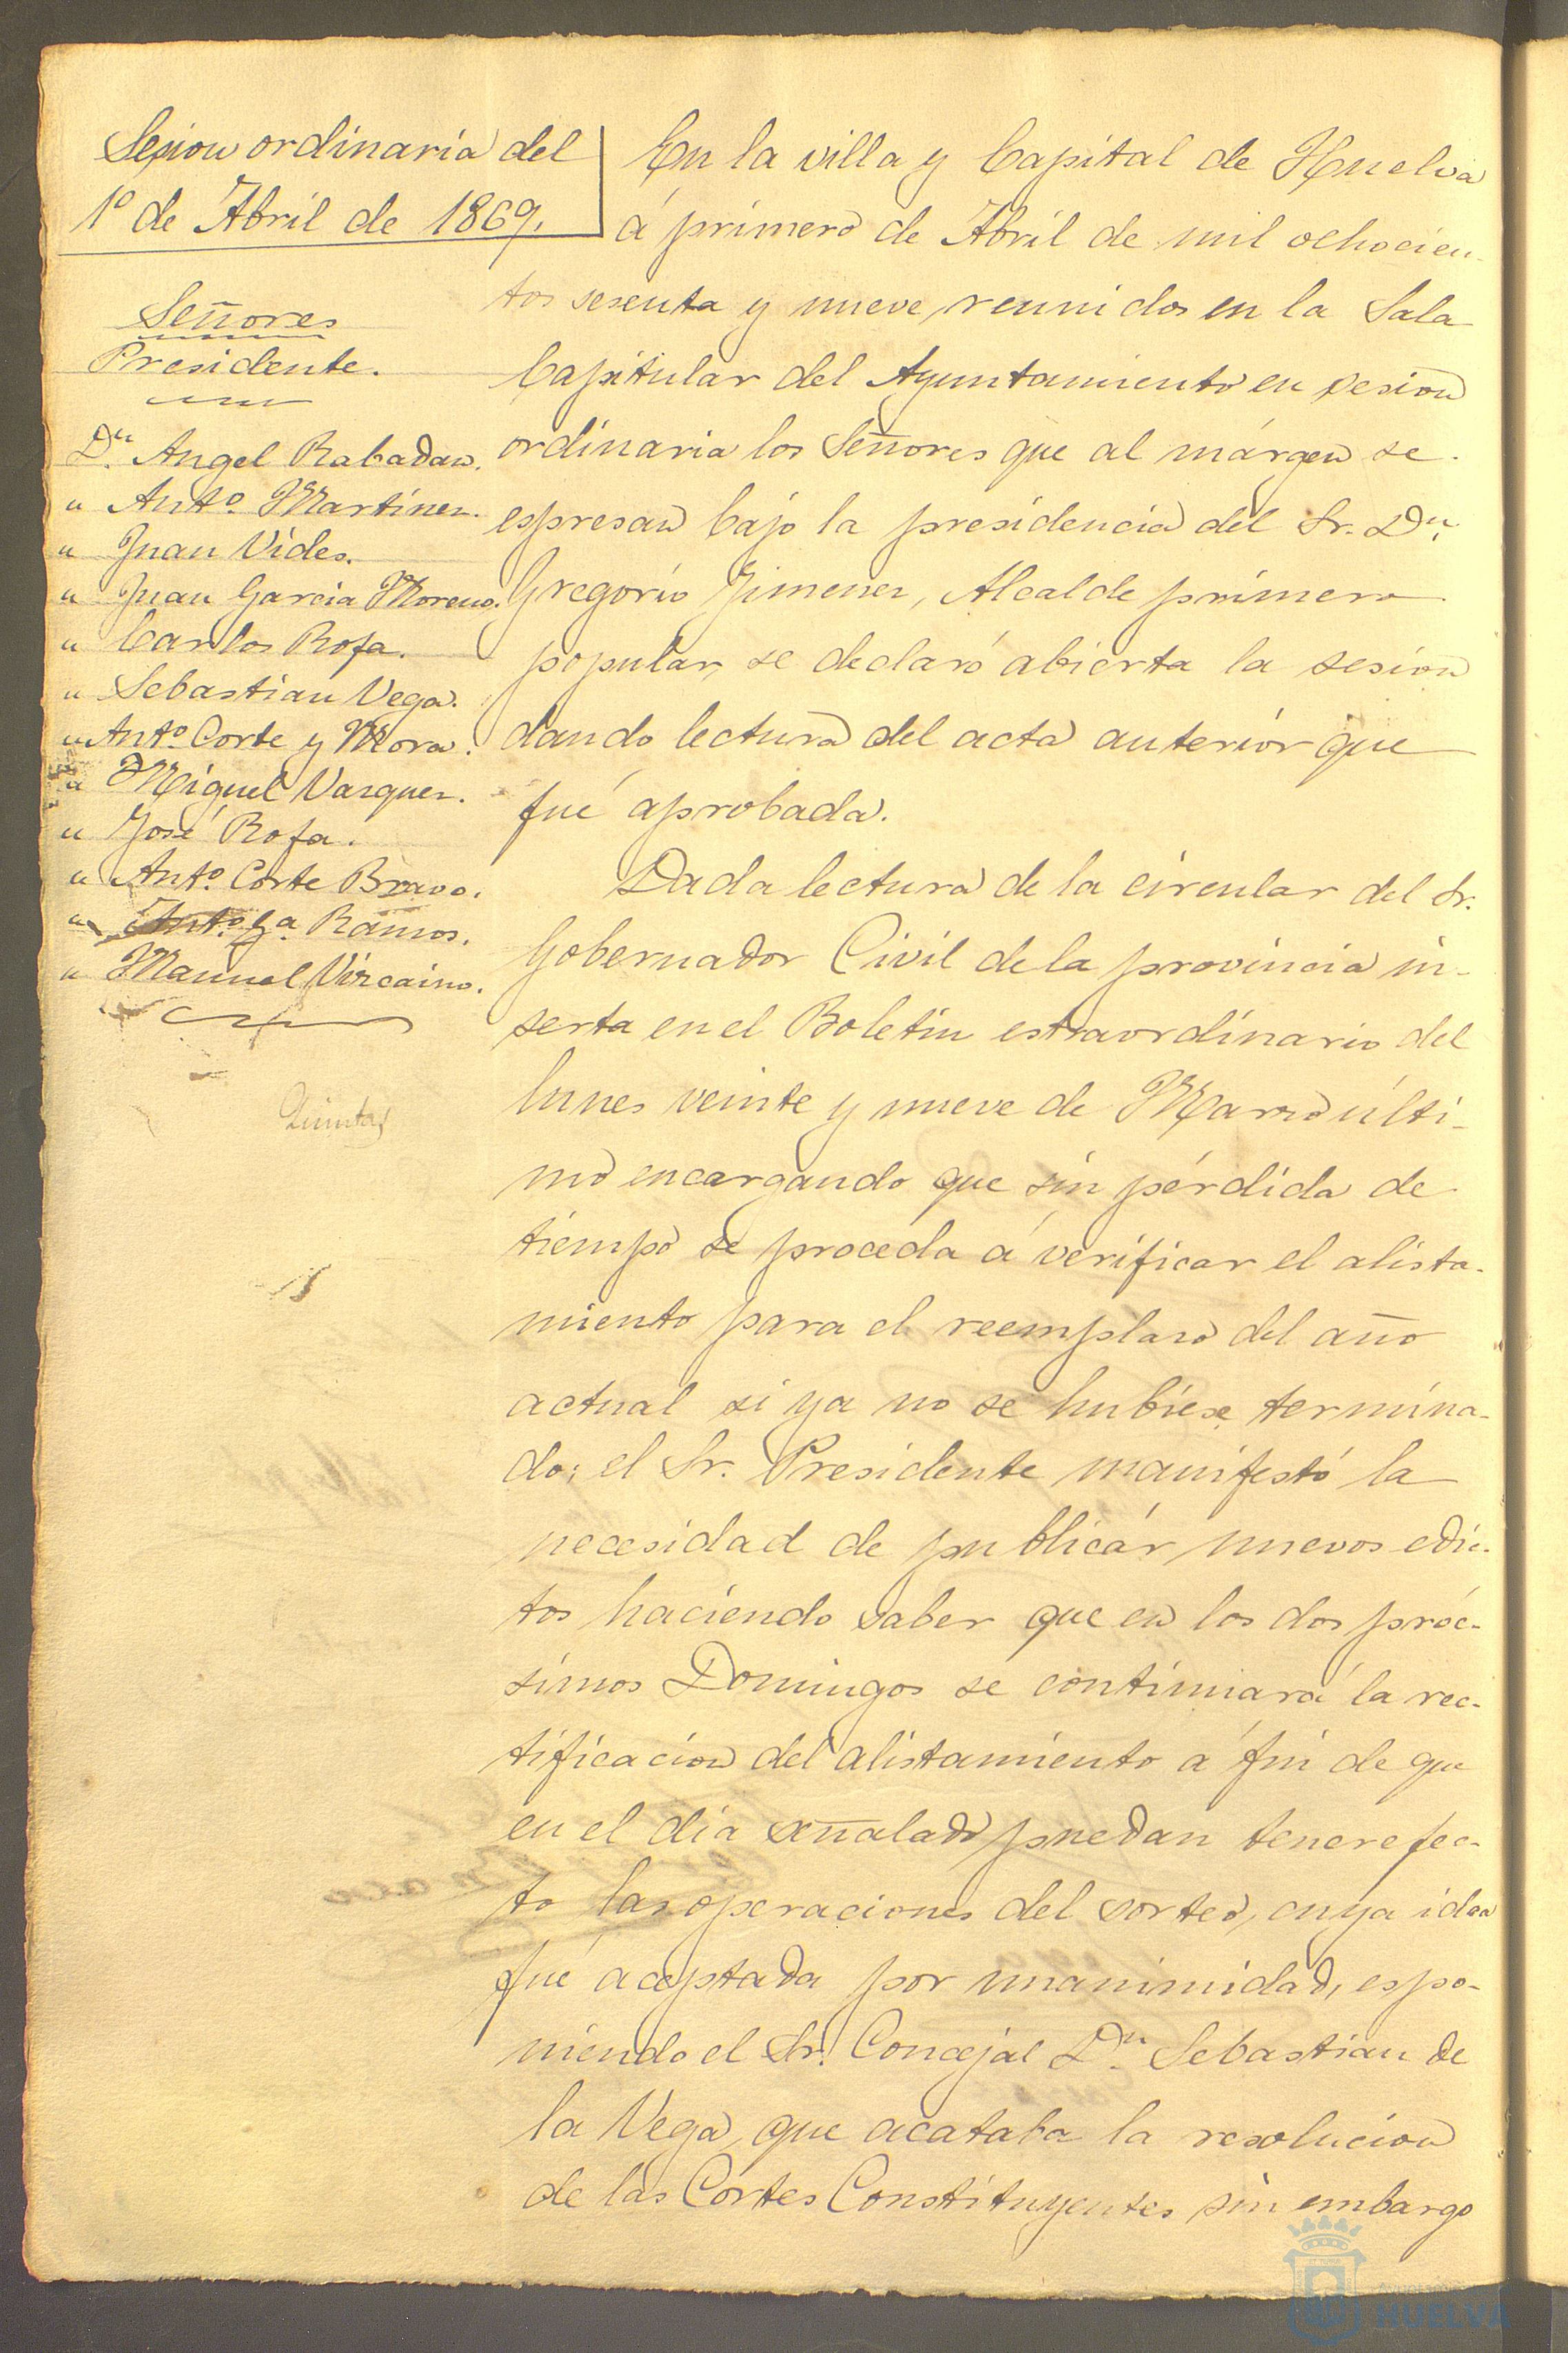 Sesion ordinaria del
1º de Abril de 1869.
Señores
Presidente.
Dn. Angel Rabadan.
" Antº Martinez.
" Juan Vides.
" Juan Garcia Moreno.
" Carlos Rofa.
" Sebastian Vega.
" Antº Corte y Mora.
" Miguel Vazquez.
" José Rofa.
" Antº Corte Bravo.
" Antº Gª Ramos.
" Manuel Vizcaino.
Quintas
En la villa y Capital de Huelva
á primero de Abril de mil ochocien-
tos sesenta y nueve, reunidos en la Sala
Capitular del Ayuntamiento en sesion
ordinaria los Señores que al márgen se
espresan bajo la presidencia del Sr. Dn.
Gregorio Jimenez, Alcalde primero
popular, se declaró abierta la sesion
dando lectura del acta anterior que
fué aprobada.
Dada lectura de la circular del Sr.
Gobernador Civil de la provincia in-
serta en el Boletin estraordinario del
lunes veinte y nueve de Marzo últi-
mo encargando que sin pérdida de
tiempo se proceda á verificar el alista-
miento para el reemplazo del año
actual si ya no se hubiese termina-
do; el Sr. Presidente manifestó la
necesidad de publicar nuevos edic-
tos haciendo saber que en los dos próc-
simos Domingos se continuará la rec-
tificacion del alistamiento á fin de que
en el dia señalado puedan tener efec-
to las operaciones del sorteo, cuya idea
fué aceptada por unanimidad, espo-
niendo el Sr. Concejal Dn. Sebastian de
la Vega, que acataba la resolucion
de las Córtes Constituyentes sin embargo
HUELVA